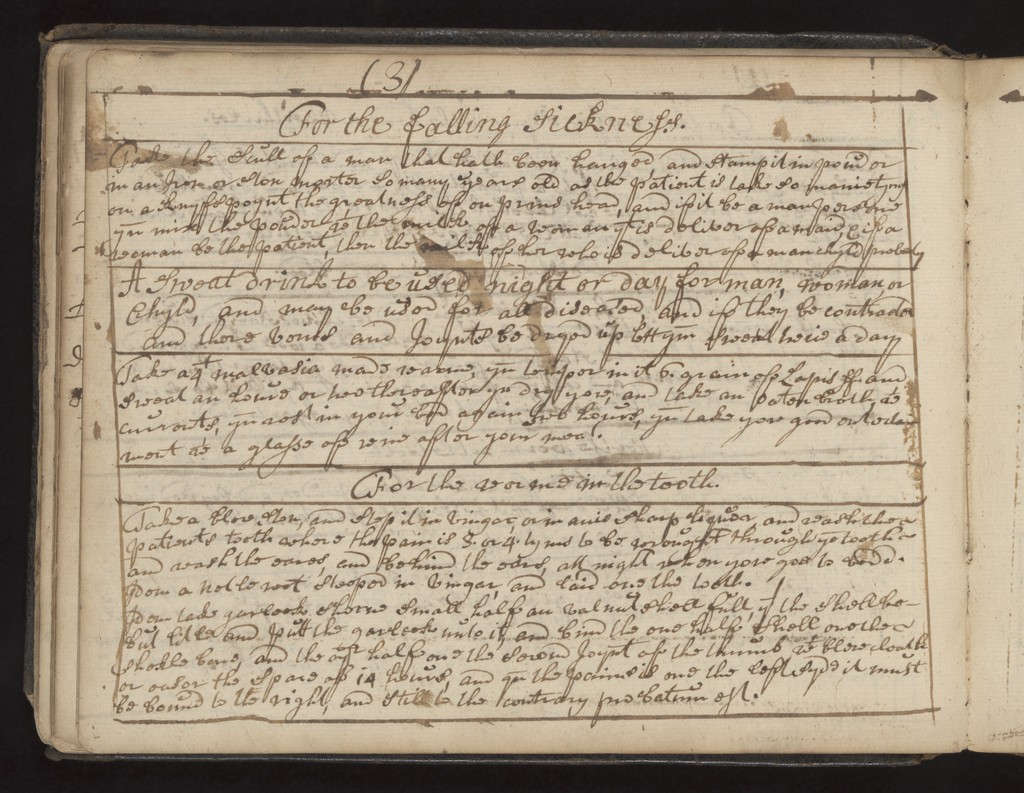 (3)
For the falling sickness.
Take the scull of a man that hath been hanged and stamp it in poud or
in an Iron or ston morter so many years old as the patient is take so maniety
on a knyffs poynt the greatness off on prins hea, and iff it be a man persone
yn mix the pouder wt the milk of a woman yt is deliver off a maid, & iff a
woman be the patient, then the milk off her who is deliver off a man chyld probatū
A Sweat drink to be used night or day for man, woman or
Chyld, and may be used for all diseases, and iff they be contracted
and there veins and Joynts be dryed up lett ym sweat twic a day
Take a 4 malvasia made warme, yn temper in it 6 grain off Lapis and
sweat an houre or two thereafter yn dry your and take an oaten broth wt
currants, yn rest in your bed again houres, yn take your good
ment wt a glasse off wine after your meat.
For the worme in the tooth.
Take a blew ston, and step it in vingar, or in anie sharp liquor, and wash the
patients tooth where the pain is 3. or 4. tyms to be wrought through ye tooth
and wash the eares, and behind the ears, att night when your goe to bedd.
Idem a netle root steeped in vingar, and laid one the tooth.
Idem take garleeck shorne small half an valnut shell full, yt the shell be
but litle and putt the garleeck into it, and bind the one half shell on the
shakle bone, and the half one the second Joynt off the thumb wt blew cloath
or the space off 14 houres, and yn the paine is one the left syd it must
be bound to the right, and still to the contrary probatum est.